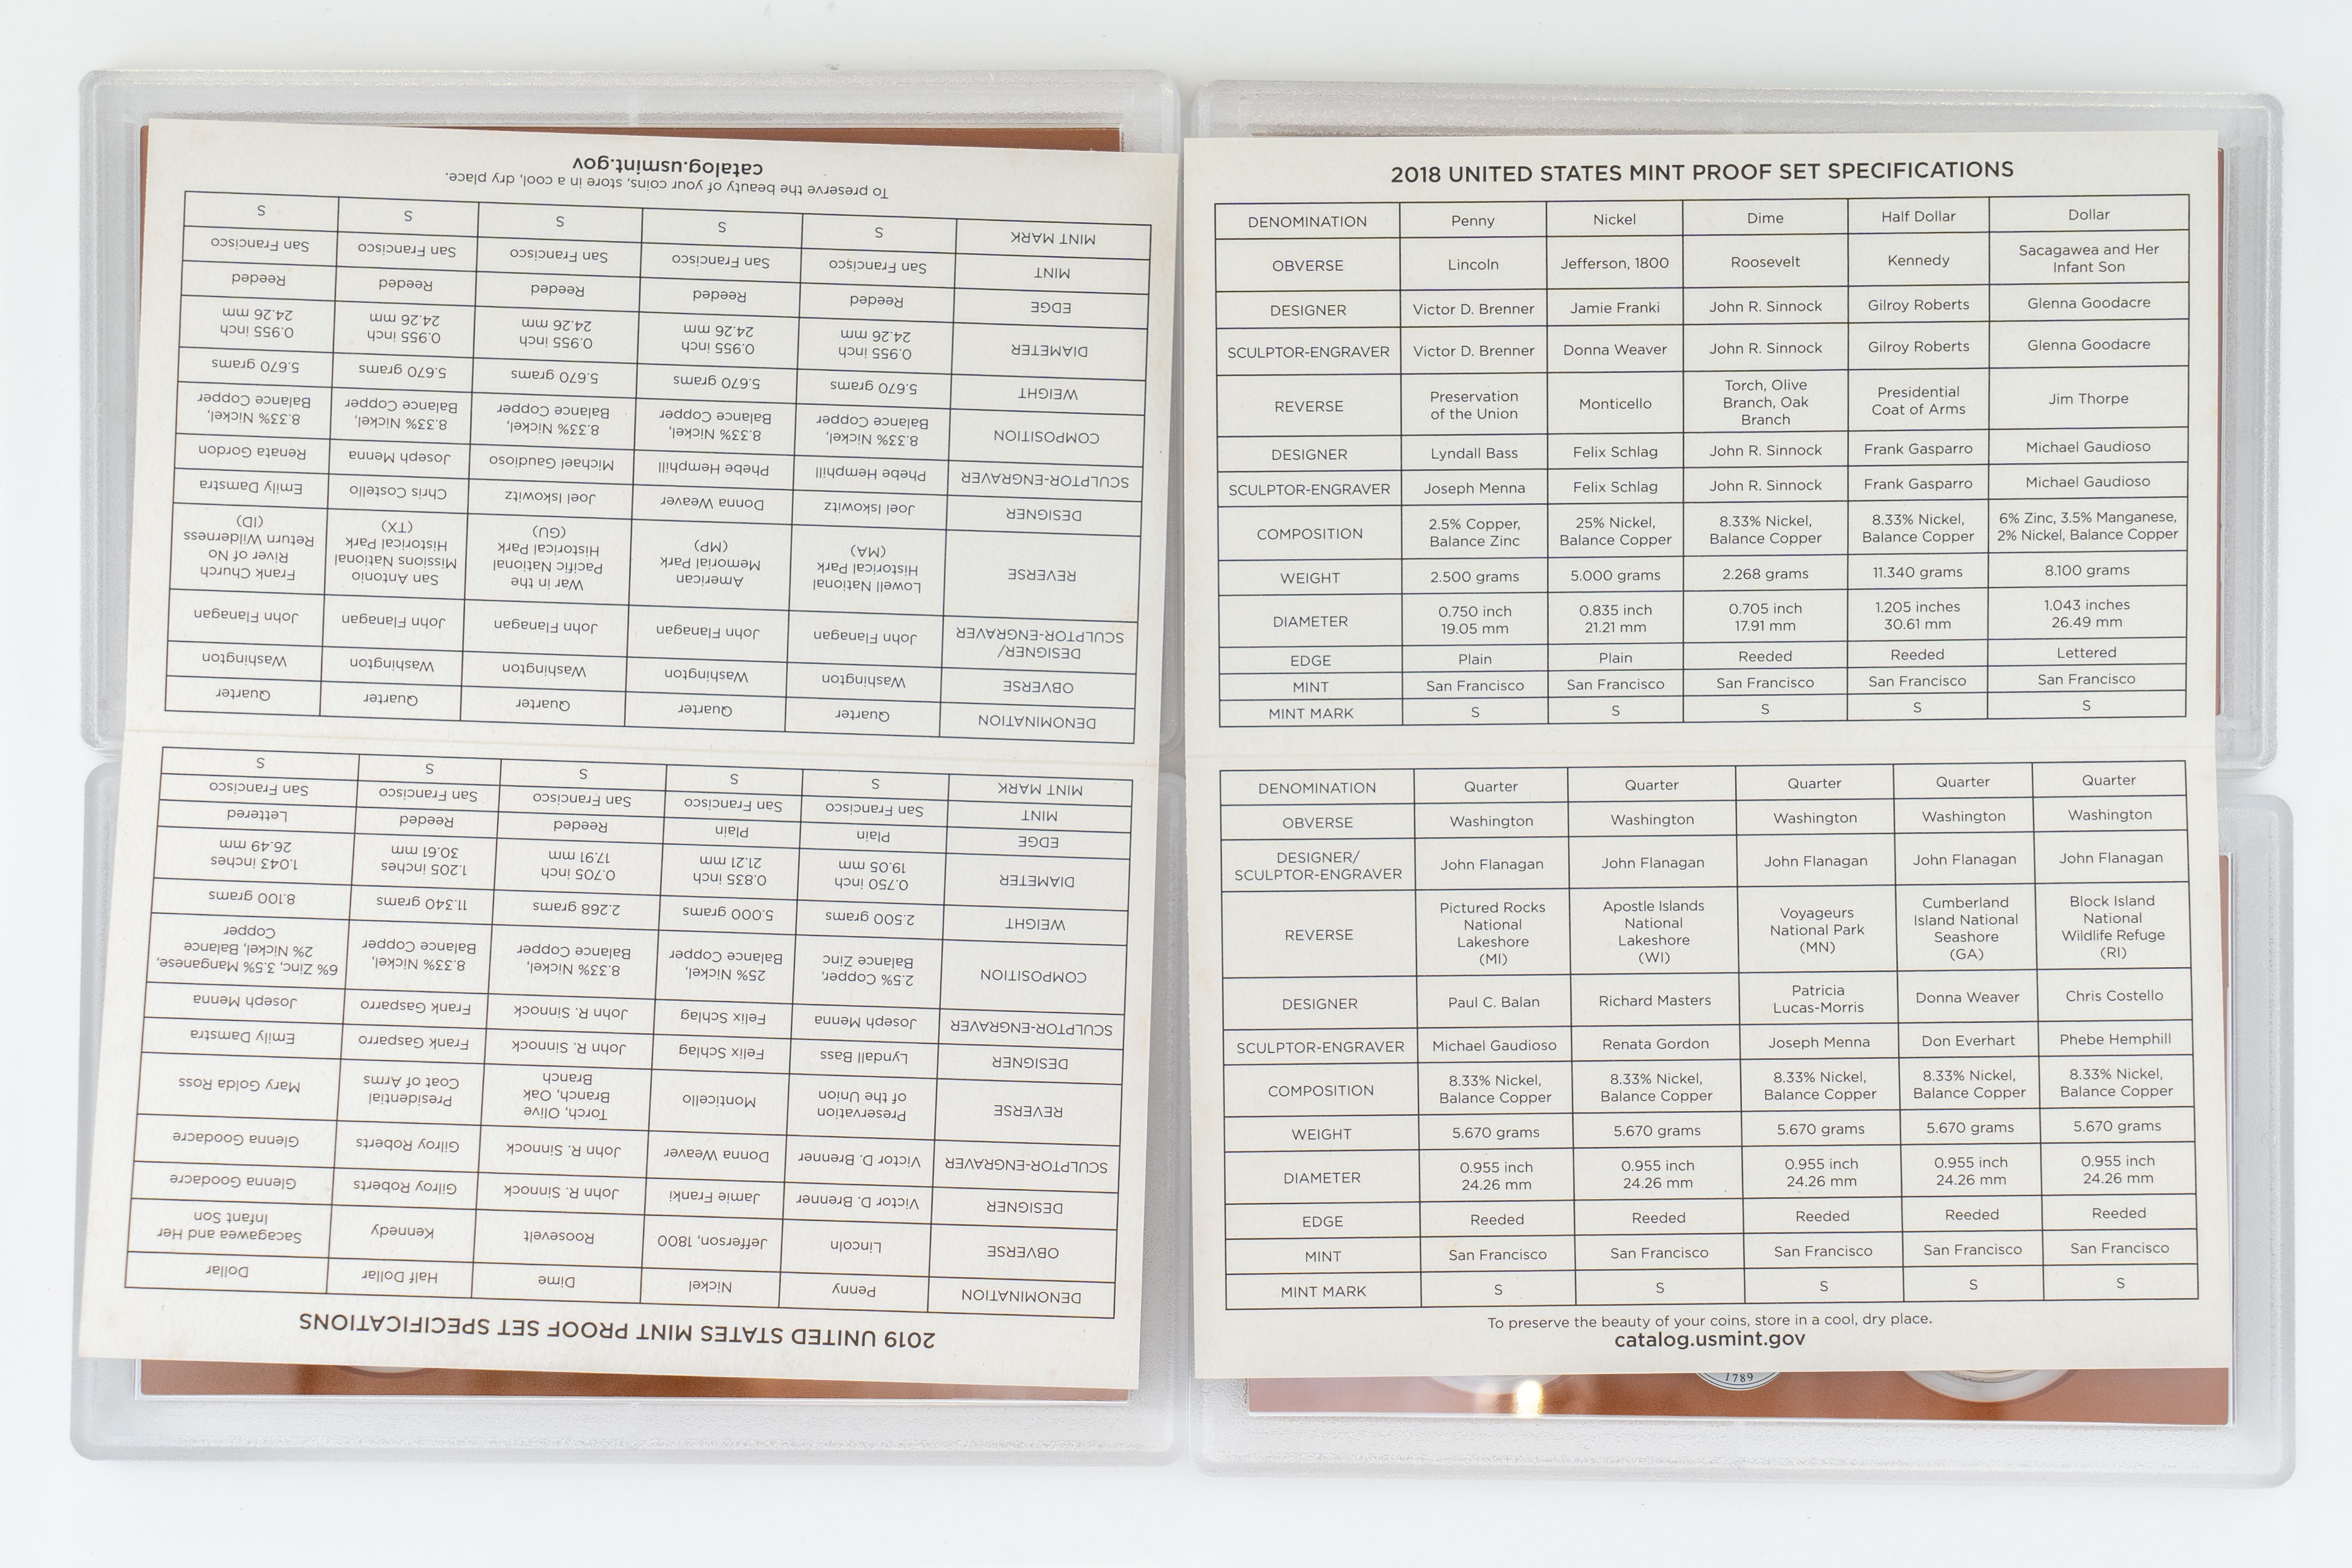 2019 UNITED STATES MINT PROOF SET SPECIFICATIONS
DENOMINATION Penny Nickel Dime Half Dollar Dollar
OBVERSE Lincoln Jefferson, 1800 Roosevelt Kennedy Sacagawea and Her
Infant Son
DESIGNER Victor D. Brenner Jamie Franki John R. Sinnock Gilroy Roberts Glenna Goodacre
SCULPTOR-ENGRAVER Victor D. Brenner Donna Weaver John R. Sinnock Gilroy Roberts Glenna Goodacre
REVERSE Preservation Monticello Torch, Olive Presidential Mary Golda Ross
of the Union Branch, Oak Coat of Arms
Branch
DESIGNER Lyndall Bass Felix Schlag John R. Sinnock Frank Gasparro Emily Damstra
SCULPTOR-ENGRAVER Joseph Menna Felix Schlag John R. Sinnock Frank Gasparro Joseph Menna
COMPOSITION 2.5% Copper, 25% Nickel, 8.33% Nickel, 8.33% Nickel, 6% Zinc, 3.5% Manganese,
Balance Zinc Balance Copper Balance Copper Balance Copper 2% Nickel, Balance
Copper
WEIGHT 2.500 grams 5.000 grams 2.268 grams 11.340 grams 8.100 grams
DIAMETER 0.750 inch 0.835 inch 0.705 inch 1.205 inches 1.043 inches
19.05 mm 21.21 mm 17.91 mm 30.61 mm 26.49 mm
EDGE Plain Plain Reeded Reeded Lettered
MINT San Francisco San Francisco San Francisco San Francisco San Francisco
MINT MARK S S S S S
DENOMINATION Quarter Quarter Quarter Quarter Quarter
OBVERSE Washington Washington Washington Washington Washington
DESIGNER/
SCULPTOR-ENGRAVER John Flanagan John Flanagan John Flanagan John Flanagan John Flanagan
REVERSE Lowell National American War in the San Antonio Frank Church
Historical Park Memorial Park Pacific National Missions National River of No
(MA) (MP) Historical Park Historical Park Return Wilderness
(GU) (TX) (ID)
DESIGNER Joel Iskowitz Donna Weaver Joel Iskowitz Chris Costello Emily Damstra
SCULPTOR-ENGRAVER Phebe Hemphill Phebe Hemphill Michael Gaudioso Joseph Menna Renata Gordon
COMPOSITION 8.33% Nickel, 8.33% Nickel, 8.33% Nickel, 8.33% Nickel, 8.33% Nickel,
Balance Copper Balance Copper Balance Copper Balance Copper Balance Copper
WEIGHT 5.670 grams 5.670 grams 5.670 grams 5.670 grams 5.670 grams
DIAMETER 0.955 inch 0.955 inch 0.955 inch 0.955 inch 0.955 inch
24.26 mm 24.26 mm 24.26 mm 24.26 mm 24.26 mm
EDGE Reeded Reeded Reeded Reeded Reeded
MINT San Francisco San Francisco San Francisco San Francisco San Francisco
MINT MARK S S S S S
To preserve the beauty of your coins, store in a cool, dry place.
catalog.usmint.gov
2018 UNITED STATES MINT PROOF SET SPECIFICATIONS
DENOMINATION Penny Nickel Dime Half Dollar Dollar
OBVERSE Lincoln Jefferson, 1800 Roosevelt Kennedy Sacagawea and Her
Infant Son
DESIGNER Victor D. Brenner Jamie Franki John R. Sinnock Gilroy Roberts Glenna Goodacre
SCULPTOR-ENGRAVER Victor D. Brenner Donna Weaver John R. Sinnock Gilroy Roberts Glenna Goodacre
REVERSE Preservation Monticello Torch, Olive Presidential Jim Thorpe
of the Union Branch, Oak Coat of Arms
Branch
DESIGNER Lyndall Bass Felix Schlag John R. Sinnock Frank Gasparro Michael Gaudioso
SCULPTOR-ENGRAVER Joseph Menna Felix Schlag John R. Sinnock Frank Gasparro Michael Gaudioso
COMPOSITION 2.5% Copper, 25% Nickel, 8.33% Nickel, 8.33% Nickel, 6% Zinc, 3.5% Manganese,
Balance Zinc Balance Copper Balance Copper Balance Copper 2% Nickel, Balance Copper
WEIGHT 2.500 grams 5.000 grams 2.268 grams 11.340 grams 8.100 grams
DIAMETER 0.750 inch 0.835 inch 0.705 inch 1.205 inches 1.043 inches
19.05 mm 21.21 mm 17.91 mm 30.61 mm 26.49 mm
EDGE Plain Plain Reeded Reeded Lettered
MINT San Francisco San Francisco San Francisco San Francisco San Francisco
MINT MARK S S S S S
DENOMINATION Quarter Quarter Quarter Quarter Quarter
OBVERSE Washington Washington Washington Washington Washington
DESIGNER/
SCULPTOR-ENGRAVER John Flanagan John Flanagan John Flanagan John Flanagan John Flanagan
REVERSE Pictured Rocks Apostle Islands Voyageurs Cumberland Block Island
National National National Park Island National National
Lakeshore Lakeshore (MN) Seashore Wildlife Refuge
(MI) (WI) (GA) (RI)
DESIGNER Paul C. Balan Richard Masters Patricia Donna Weaver Chris Costello
Lucas-Morris
SCULPTOR-ENGRAVER Michael Gaudioso Renata Gordon Joseph Menna Don Everhart Phebe Hemphill
COMPOSITION 8.33% Nickel, 8.33% Nickel, 8.33% Nickel, 8.33% Nickel, 8.33% Nickel,
Balance Copper Balance Copper Balance Copper Balance Copper Balance Copper
WEIGHT 5.670 grams 5.670 grams 5.670 grams 5.670 grams 5.670 grams
DIAMETER 0.955 inch 0.955 inch 0.955 inch 0.955 inch 0.955 inch
24.26 mm 24.26 mm 24.26 mm 24.26 mm 24.26 mm
EDGE Reeded Reeded Reeded Reeded Reeded
MINT San Francisco San Francisco San Francisco San Francisco San Francisco
MINT MARK S S S S S
To preserve the beauty of your coins, store in a cool, dry place.
catalog.usmint.gov
1789